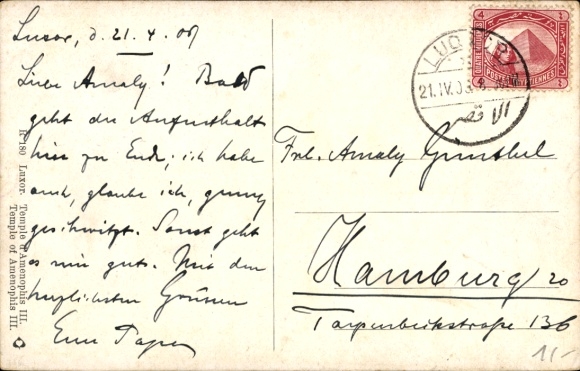 Luxor, d. 21.4.09
Liebe Amaly! Bald
geht der Aufenthalt
hier zu Ende; ich habe
auch, glaube ich, genug
geschwitzt. Sonst geht
es mir gut. Mit den
herzlichsten Grüssen
R 180 Luxor. Temple d'Amenophis III.
Temple of Amenophis III.
4
4
POSTES EGYPTIENNES
LUQSOR
21.IV.09
الاقصر
Frl. Amaly
Hamburg 20
Tarpenbekstraße 136
11-